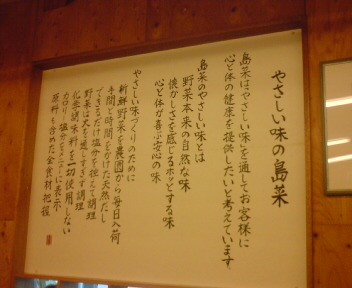 やさしい味の島菜
島菜はやさしい味を通してお客様に
心と体の健康を提供したいと考えています
島菜のやさしい味とは
野菜本来の自然な味
懐かしさを感じるホッとする味
心と体が喜ぶ安心の味
やさしい味づくりのために
新鮮野菜を農園から毎日入荷
手間と時間をかけた天然だし
できるだけ塩分を控えて調理
野菜は火を通しすぎず調理
化学調味料を一切使用しない
カロリー塩分をメニューに表示
原料も含めた全食材把握